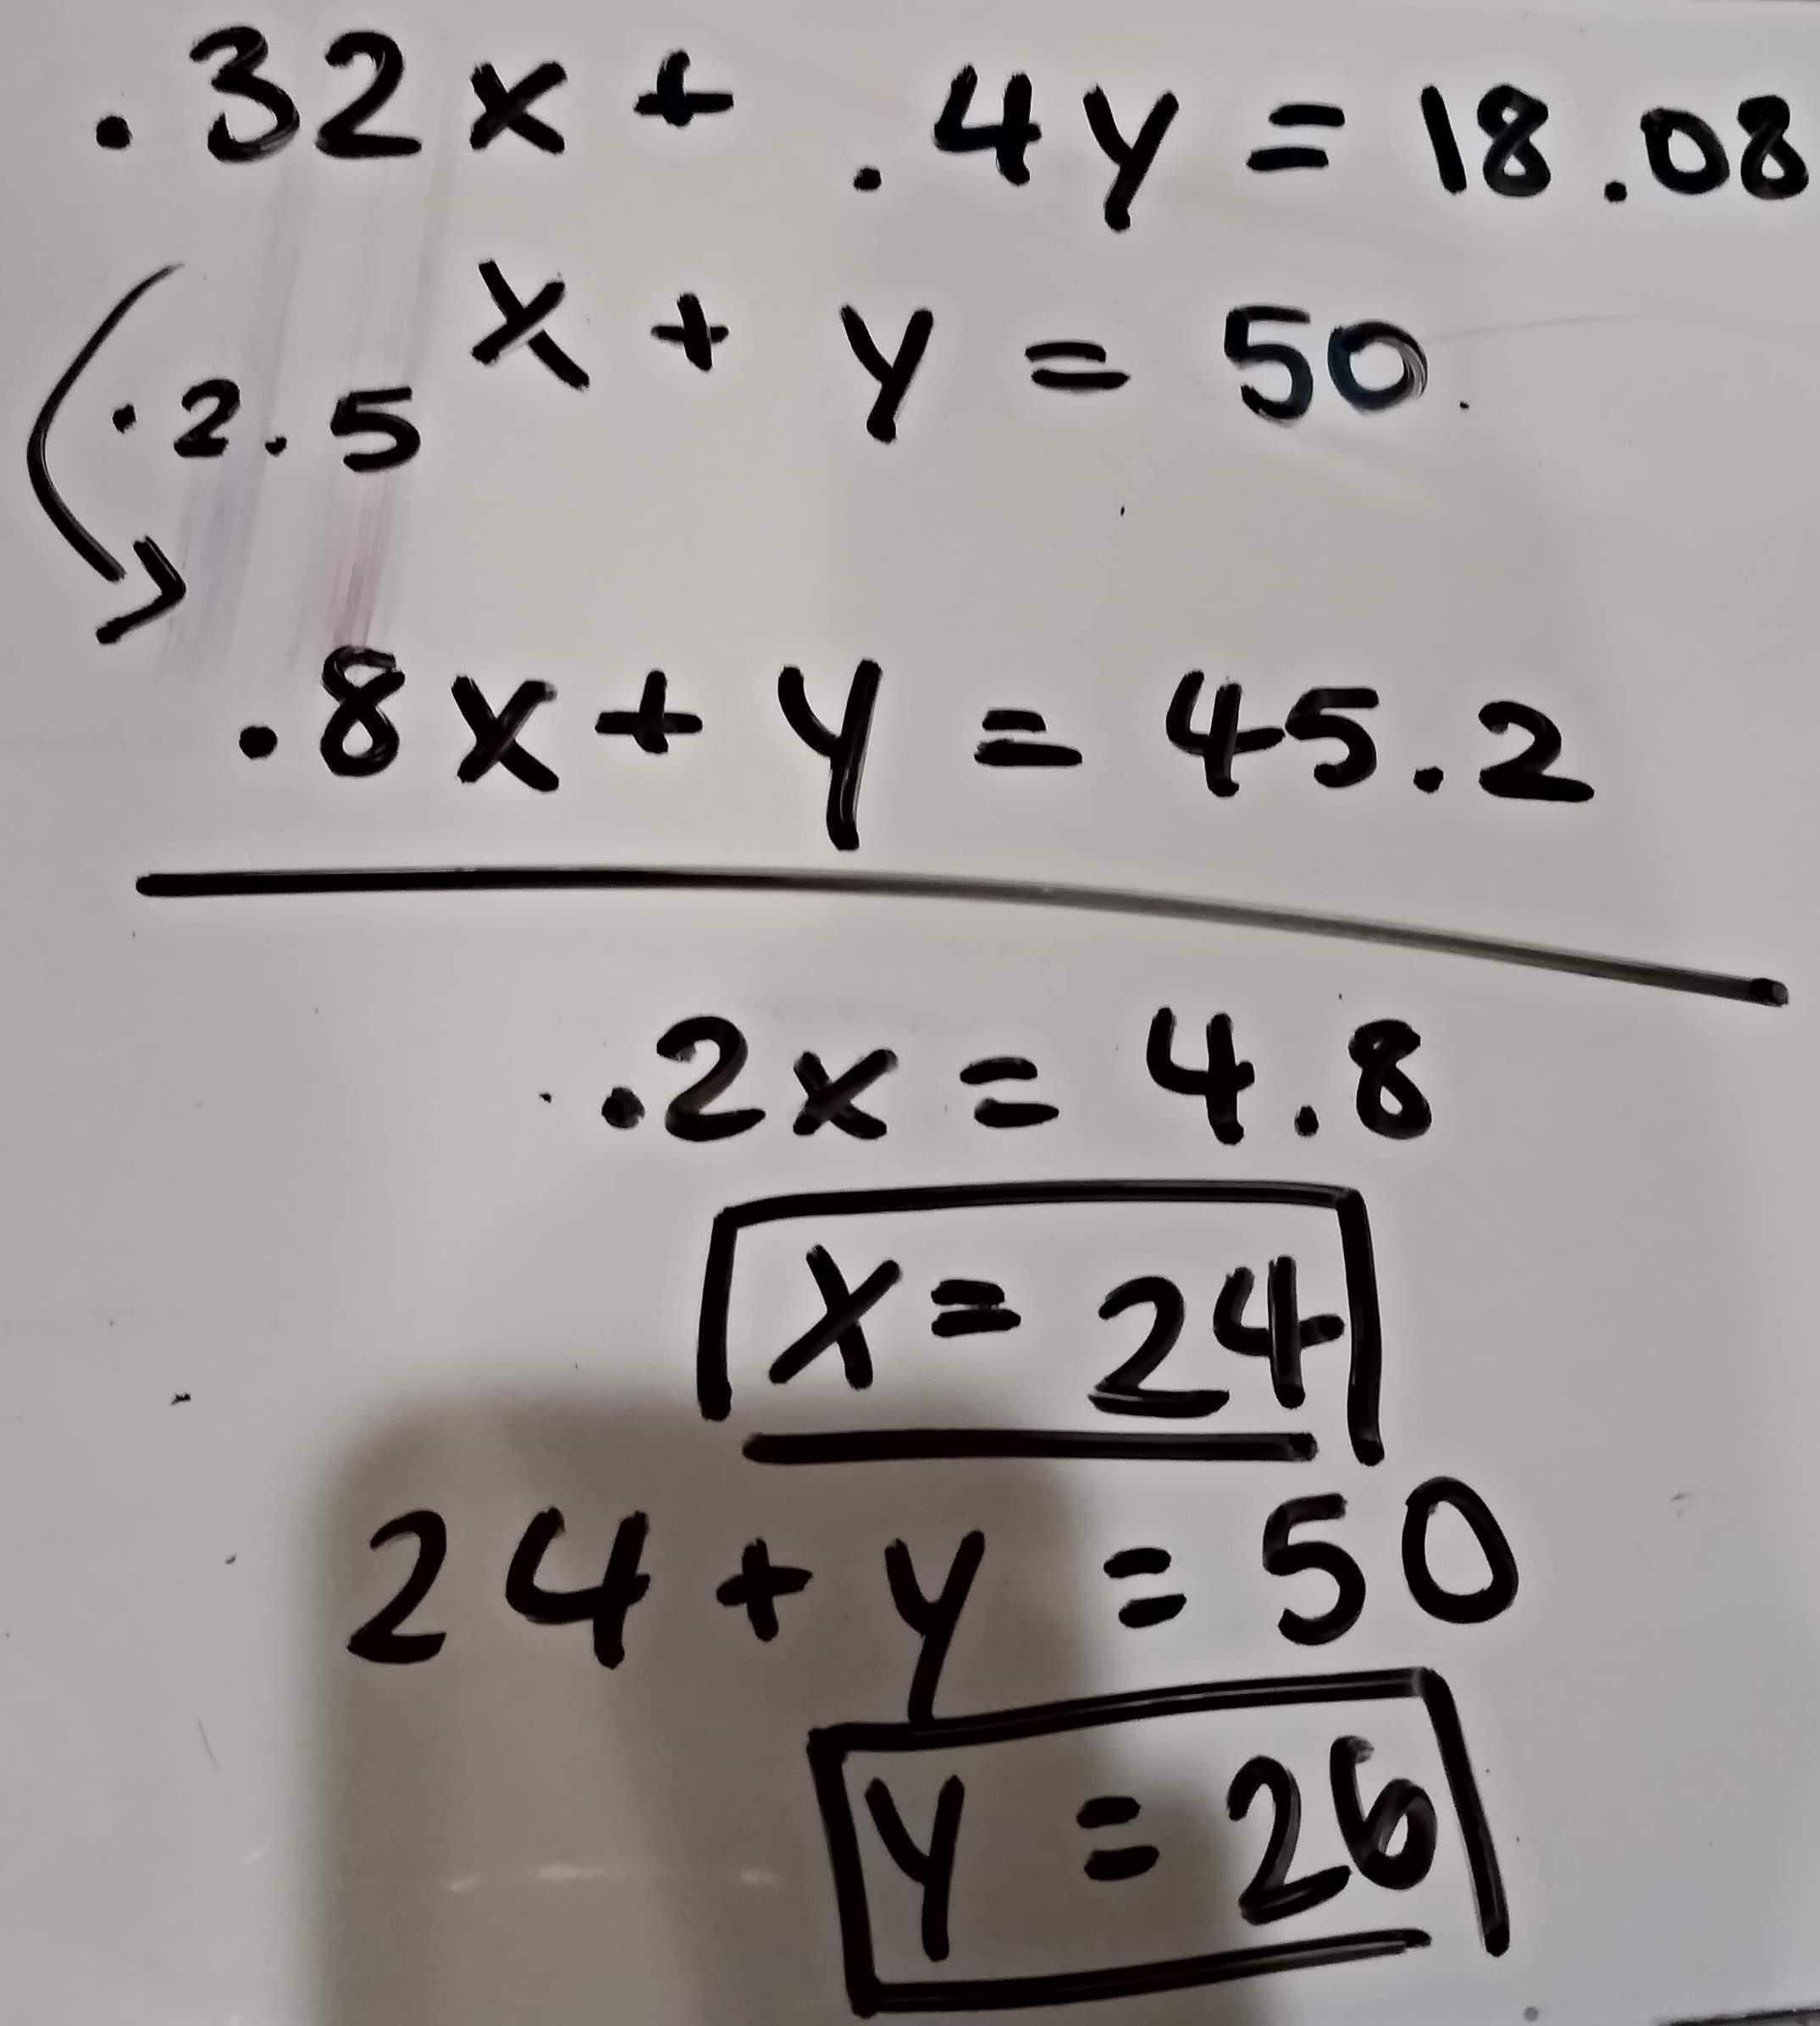 .32x + .4y = 18.08
x + y = 50
·2.5
.8x + y = 45.2
.2x = 4.8
x = 24
24 + y = 50
y = 26